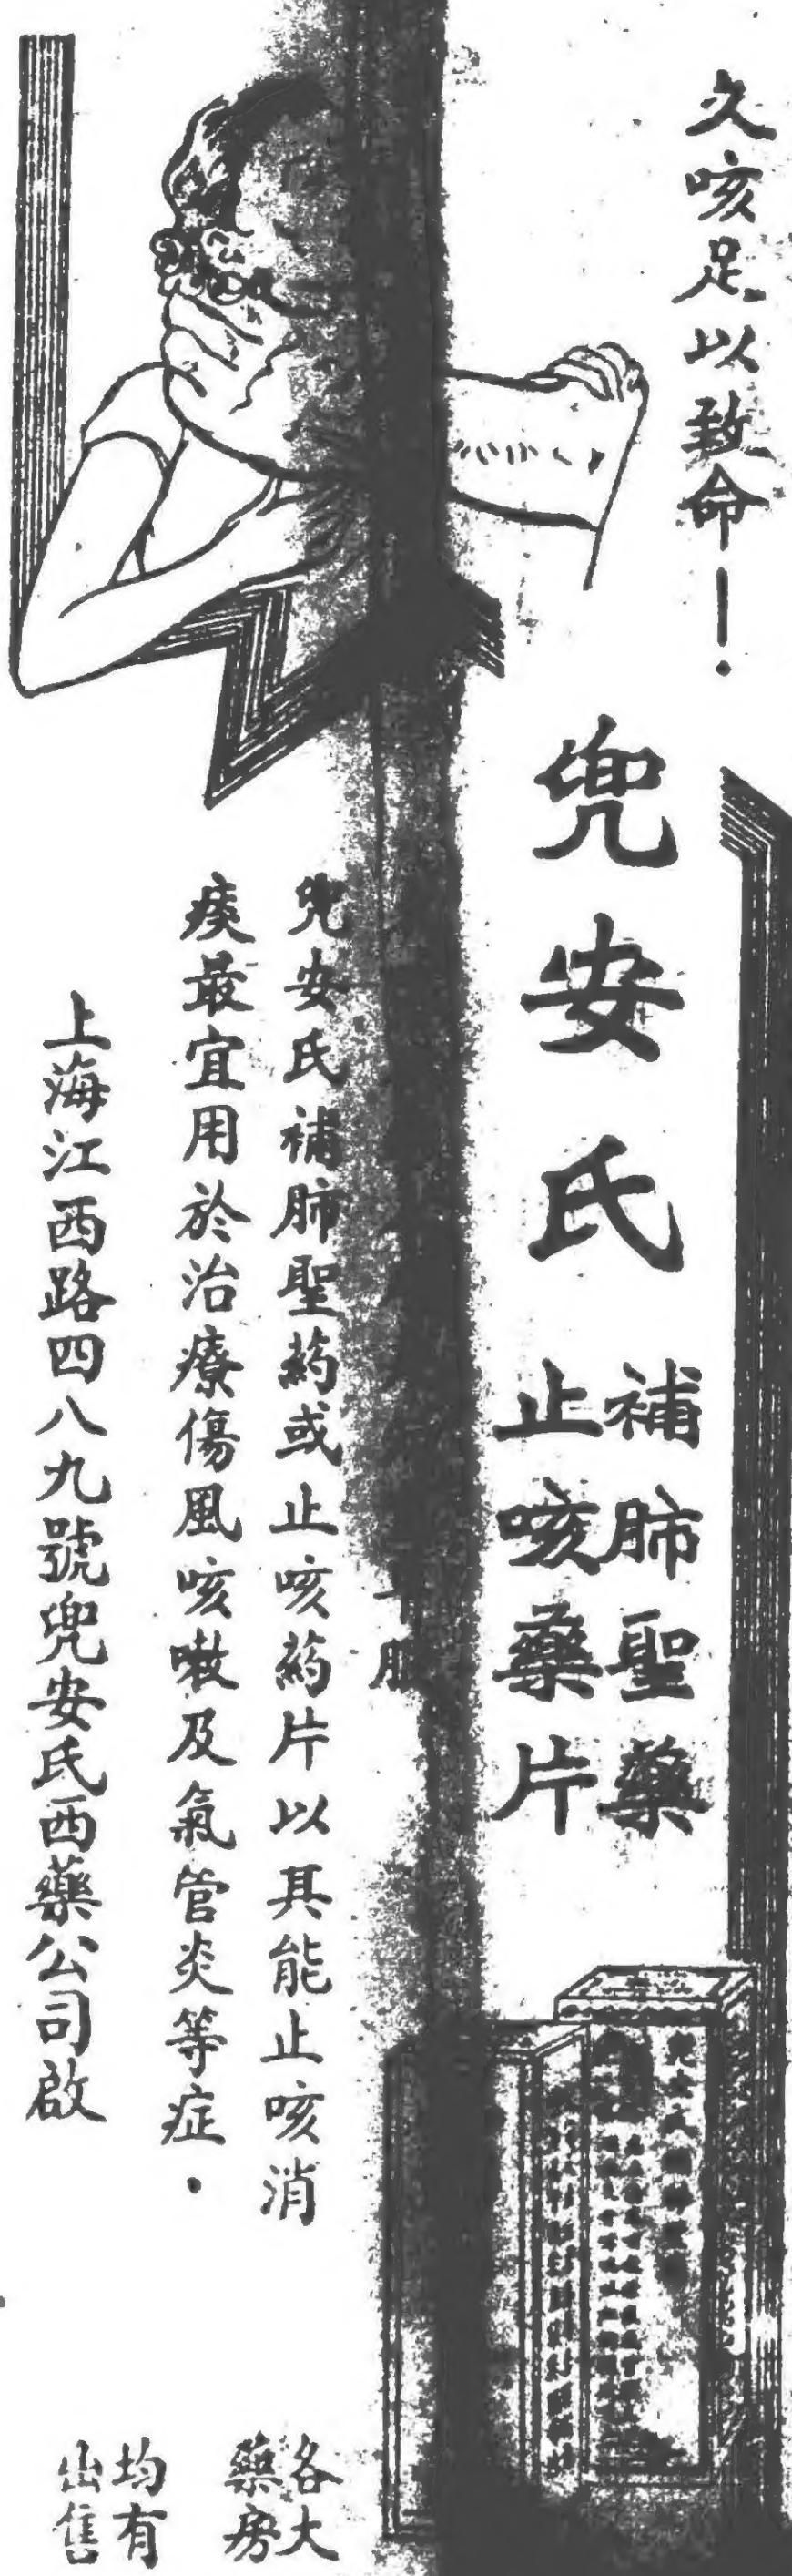 久咳足以致命！
兜安氏
補肺聖藥
止咳藥片
服
兜安氏補肺聖葯或止咳葯片以其能止咳消
痰最宜用於治療傷風咳嗽及氣管炎等症．
上海江西路四八九號兜安氏西藥公司啟
各大
藥房
均有
出售